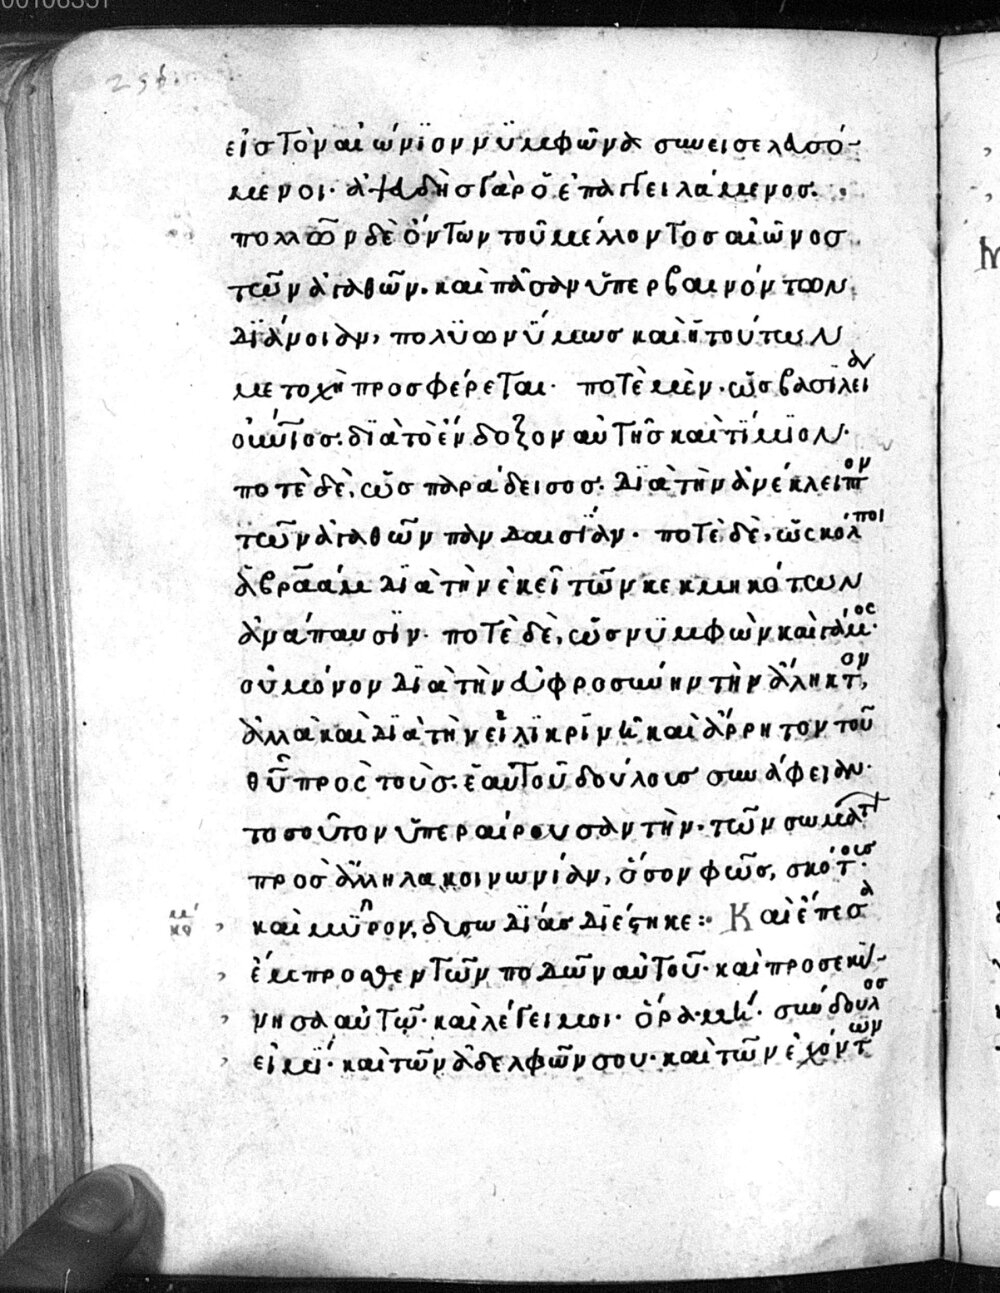 εἰς τὸν αἰώνϊον νϋμφῶνα συνεισελασό-
μενοι· ἀψαδὴς γὰρ ὁ ἐπαγγειλάμενος.
πολλῶν δὲ ὄντων τοῦ μέλλοντος αἰῶνος
τῶν ἀγαθῶν. καὶ πᾶσαν ὑπερβαινόντων
διάνοιαν, πολϋωνΰμως καὶ ἡ τούτων
μετοχὴ προσφέρεται· ποτὲ μὲν. ὡς βασϊλείαν
οὐνιος. δϊὰ τὸ ἔνδοξον αὐτῆς καὶ τίμϊον.
ποτὲ δὲ, ὡς παράδεισος. Δϊὰ τὴν ἀνέκλειπτον
τῶν ἀγαθῶν πανδαισίαν. ποτὲ δὲ, ὡς κόλποι
ἀβραὰμ Δϊὰ τὴν ἐκεῖ τῶν κεκμηκότων
ἀνάπαυσϊν. ποτὲ δὲ, ὡς νϋμφὼν καὶ γάμος.
οὐ μόνον Δϊὰ τὴν εὐφροσύνην τὴν ἄληκτον,
ἀλλὰ καὶ Δϊὰ τὴν εἰλϊκρϊνῆ καὶ ἄρρητον τοῦ
θῦ πρὸς τοὺς. ἑαυτοῦ δούλους συνάφειαν.
τοσοῦτον ὑπεραίρουσαν τὴν. τῶν σωμάτων
πρὸς ἄλληλα κοινωνίαν, ὅσον φῶς, σκότους.
καὶ μῦρον, δυσωδίας Δϊέστηκε: Καὶ ἔπεσα
ἔμπροσθεν τῶν ποδῶν αὐτοῦ. καὶ προσεκύ-
νησα αὐτῷ. καὶ λέγει μοι. ὅρα. μή. σύνδουλος
εἰμϊ. καὶ τῶν ἀδελφῶν σου. καὶ τῶν ἐχόντων